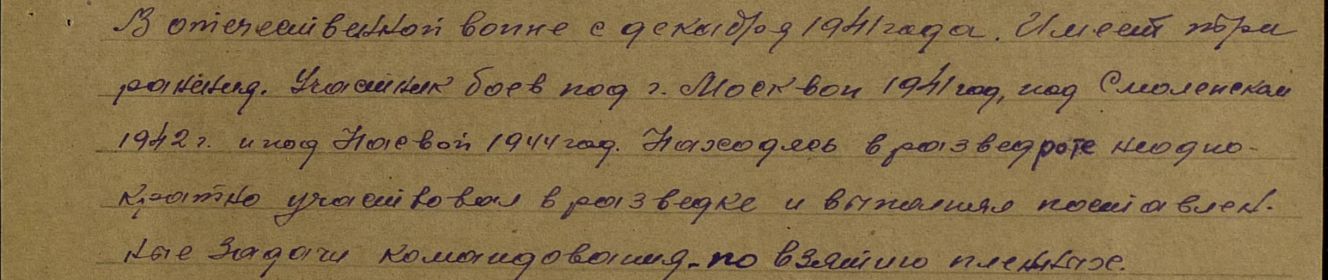 В отечественной воине с декабря 1941 года. Имеет три
ранения. Участник боев под г. Москвои 1941 год, под Смоленском
1942 г. и под Нарвой 1944 год. Находясь в разведроте неодно-
кратно участвовал в разведке и выполнял поставлен-
ные задачи командования по взятию пленных.